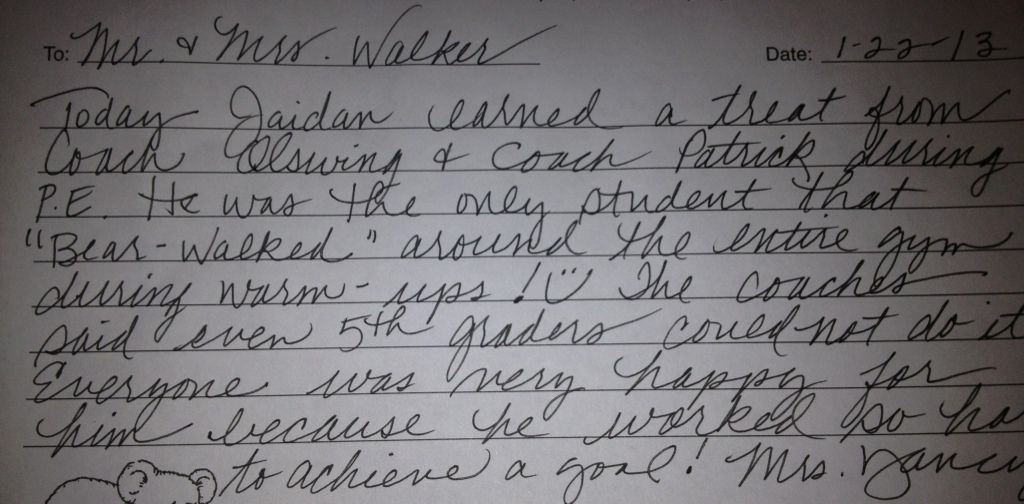 To: Mr. & Mrs. Walker Date: 1-22-13
Today Jaidan earned a treat from
Coach Olswing & Coach Patrick during
P.E. He was the only student that
"Bear-Walked" around the entire gym
during warm-ups! The coaches
said even 5th graders could not do it
Everyone was very happy for
him because he worked so ha
to achieve a goal! Mrs. Yancy